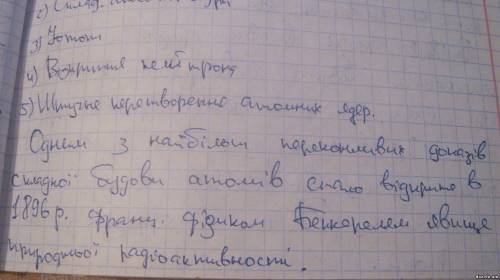 2) Склад.
3) Ізотопи
4) Відкриття нейтрона
5) Штучне перетворення атомних ядер.
Одним з найбільш переконливих доказів
складної будови атомів стало відкрите в
1896 р. франц. фізиком Беккерелем явище
природньої радіоактивності.